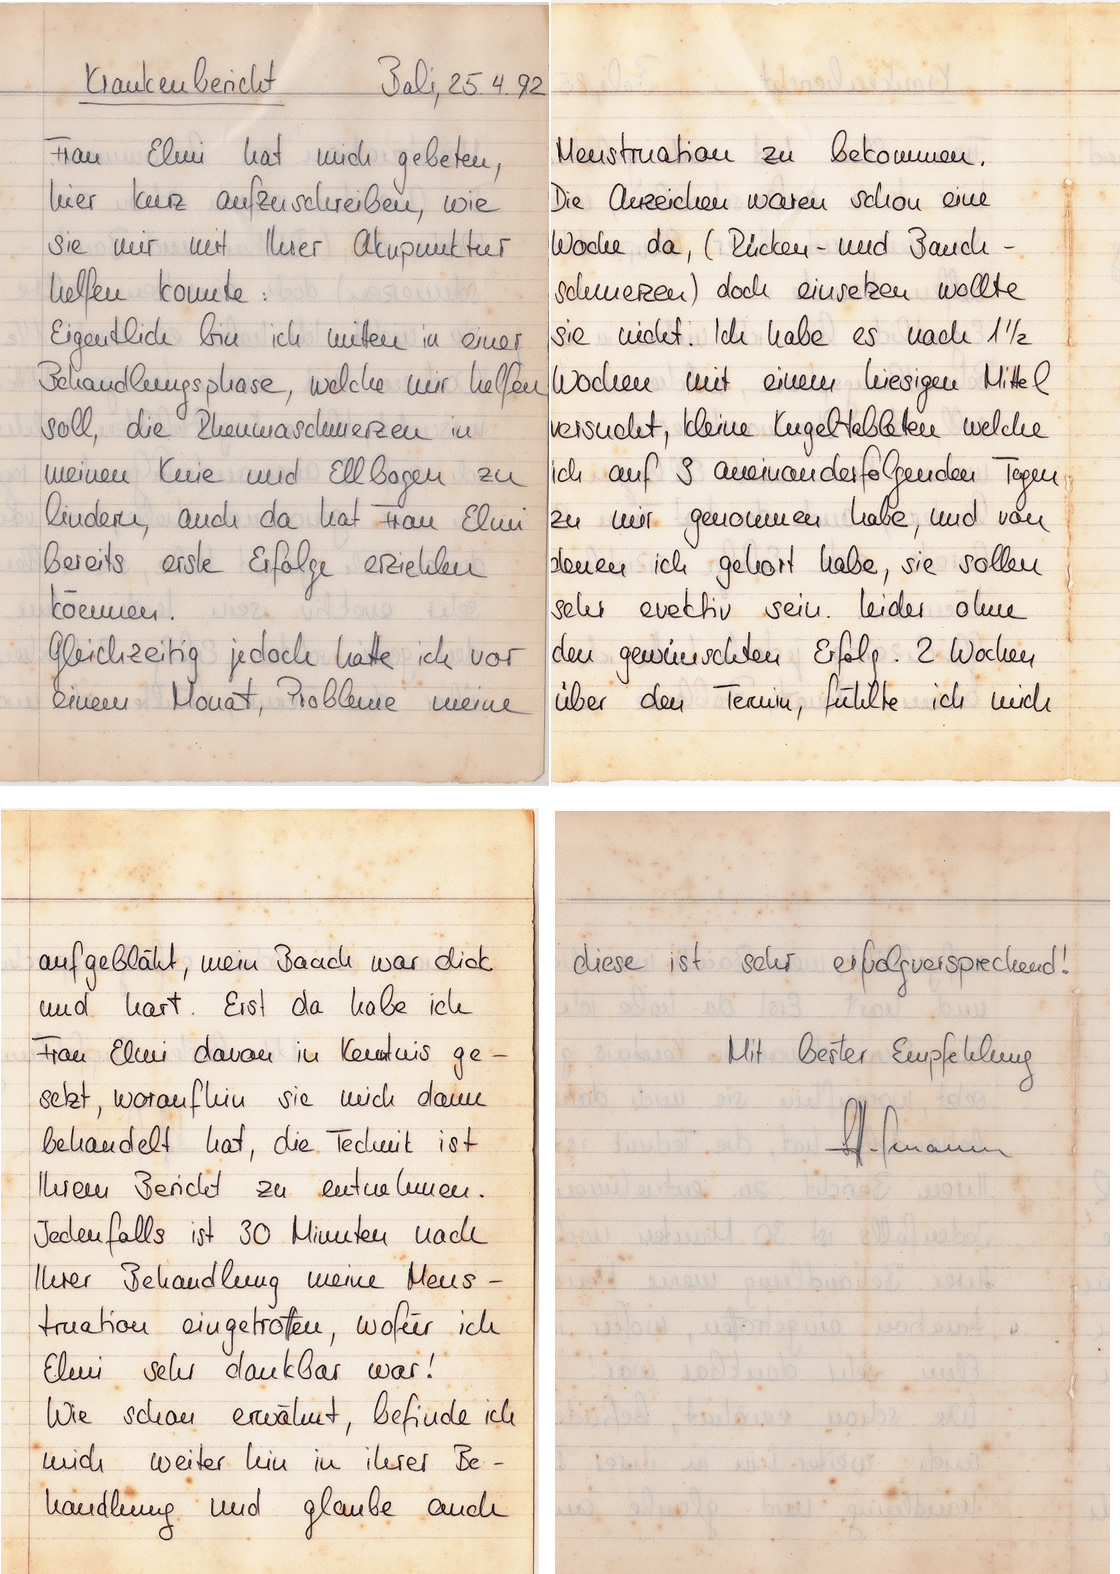 Krankenbericht Bali, 25.4.92
Frau Elmi hat mich gebeten,
hier kurz aufzuschreiben, wie
sie mir mit Ihrer Akupunktur
helfen konnte:
Eigentlich bin ich mitten in einer
Behandlungsphase, welche mir helfen
soll, die Rheumaschmerzen in
meinen Knie und Ellbogen zu
lindern, auch da hat Frau Elmi
bereits erste Erfolge erziehlen
köennen.
Gleichzeitig jedoch hatte ich vor
einem Monat, Probleme meine
Menstruation zu bekommen.
Die Anzeichen waren schon eine
Woche da, (Rücken- und Bauch-
schmerzen) doch einsetzen wollte
sie nicht. Ich habe es nach 1½
Wochen mit einem hiesigen Mittel
versucht, kleine Kugeltabletten welche
ich auf 3 aneinanderfolgenden Tagen
zu mir genommen habe, und von
denen ich gehört habe, sie sollen
sehr evektiv sein. leider ohne
den gewünschten Erfolg. 2 Wochen
über den Termin, fühlte ich mich
aufgebläht, mein Bauch war dick
und hart. Erst da habe ich
Frau Elmi davon in Kentnis ge-
setzt, woraufhin sie mich dann
behandelt hat, die Technik ist
Ihrem Bericht zu entnehmen.
Jedenfalls ist 30 Minuten nach
Ihrer Behandlung meine Mens-
truation eingetroffen, wofür ich
Elmi sehr dankbar war!
Wie schon erwähnt, befinde ich
mich weiter hin in ihrer Be-
handlung und glaube auch
diese ist sehr erfolgversprechend!
Mit bester Empfehlung